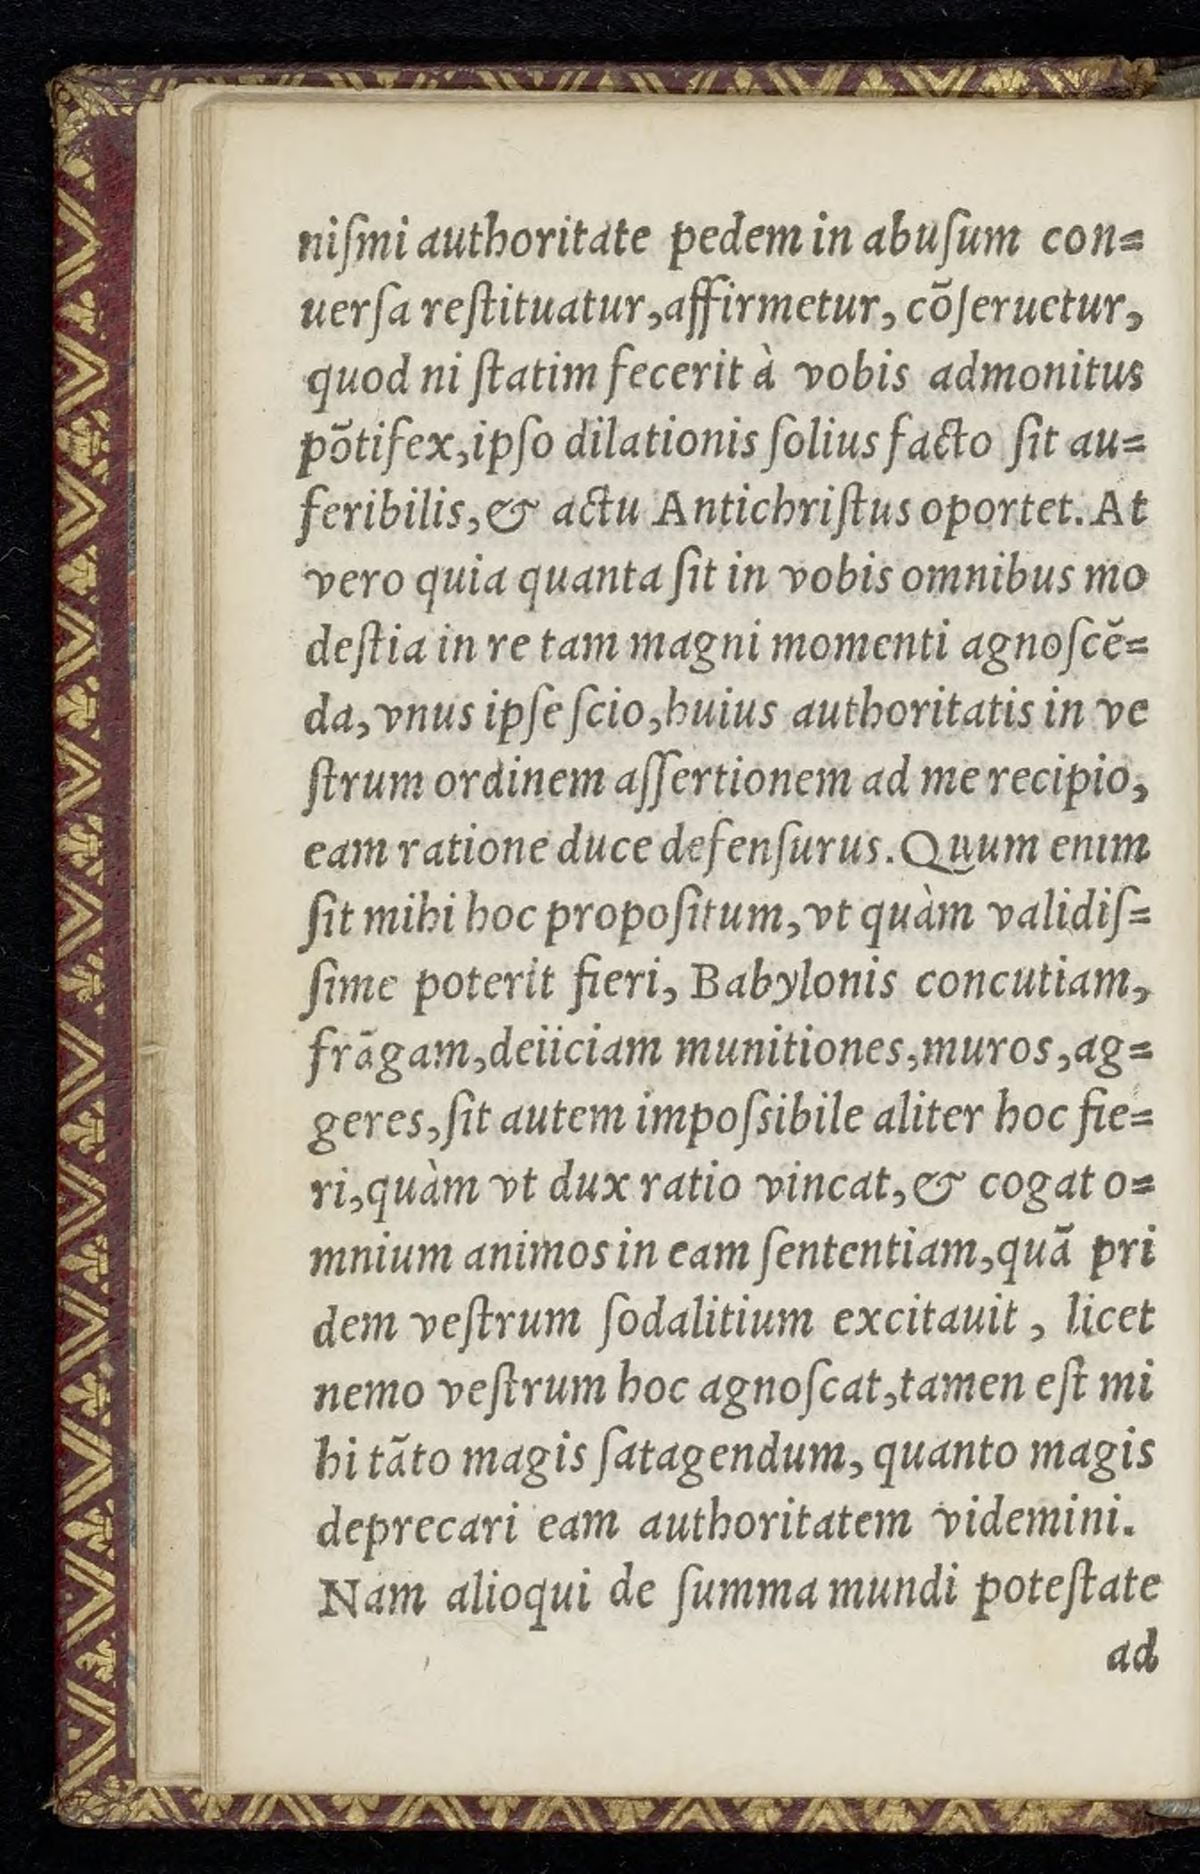 niſmi authoritate pedem in abuſum con=
uerſa reſtituatur, affirmetur, cõſeruetur,
quod ni ſtatim fecerit à vobis admonitus
põtifex, ipſo dilationis ſolius facto ſit au=
feribilis, & actu Antichriſtus oportet. At
vero quia quanta ſit in vobis omnibus mo
deſtia in re tam magni momenti agnoſcẽ=
da, vnus ipſe ſcio, huius authoritatis in ve
ſtrum ordinem aſſertionem ad me recipio,
eam ratione duce defenſurus. Quum enim
ſit mihi hoc propoſitum, vt quàm validiſ=
ſime poterit fieri, Babylonis concutiam,
frãgam, deiiciam munitiones, muros, ag=
geres, ſit autem impoſsibile aliter hoc fie=
ri, quàm vt dux ratio vincat, & cogat o=
mnium animos in eam ſententiam, quã pri
dem veſtrum ſodalitium excitauit, licet
nemo veſtrum hoc agnoſcat, tamen eſt mi
hi tãto magis ſatagendum, quanto magis
deprecari eam authoritatem videmini.
Nam alioqui de ſumma mundi poteſtate
ad